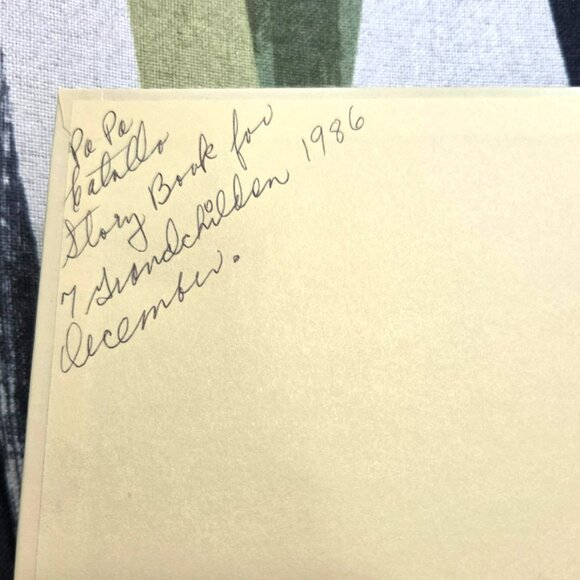 Pa Pa
Catallo
Story Book for
7 Grandchildren 1986
December.